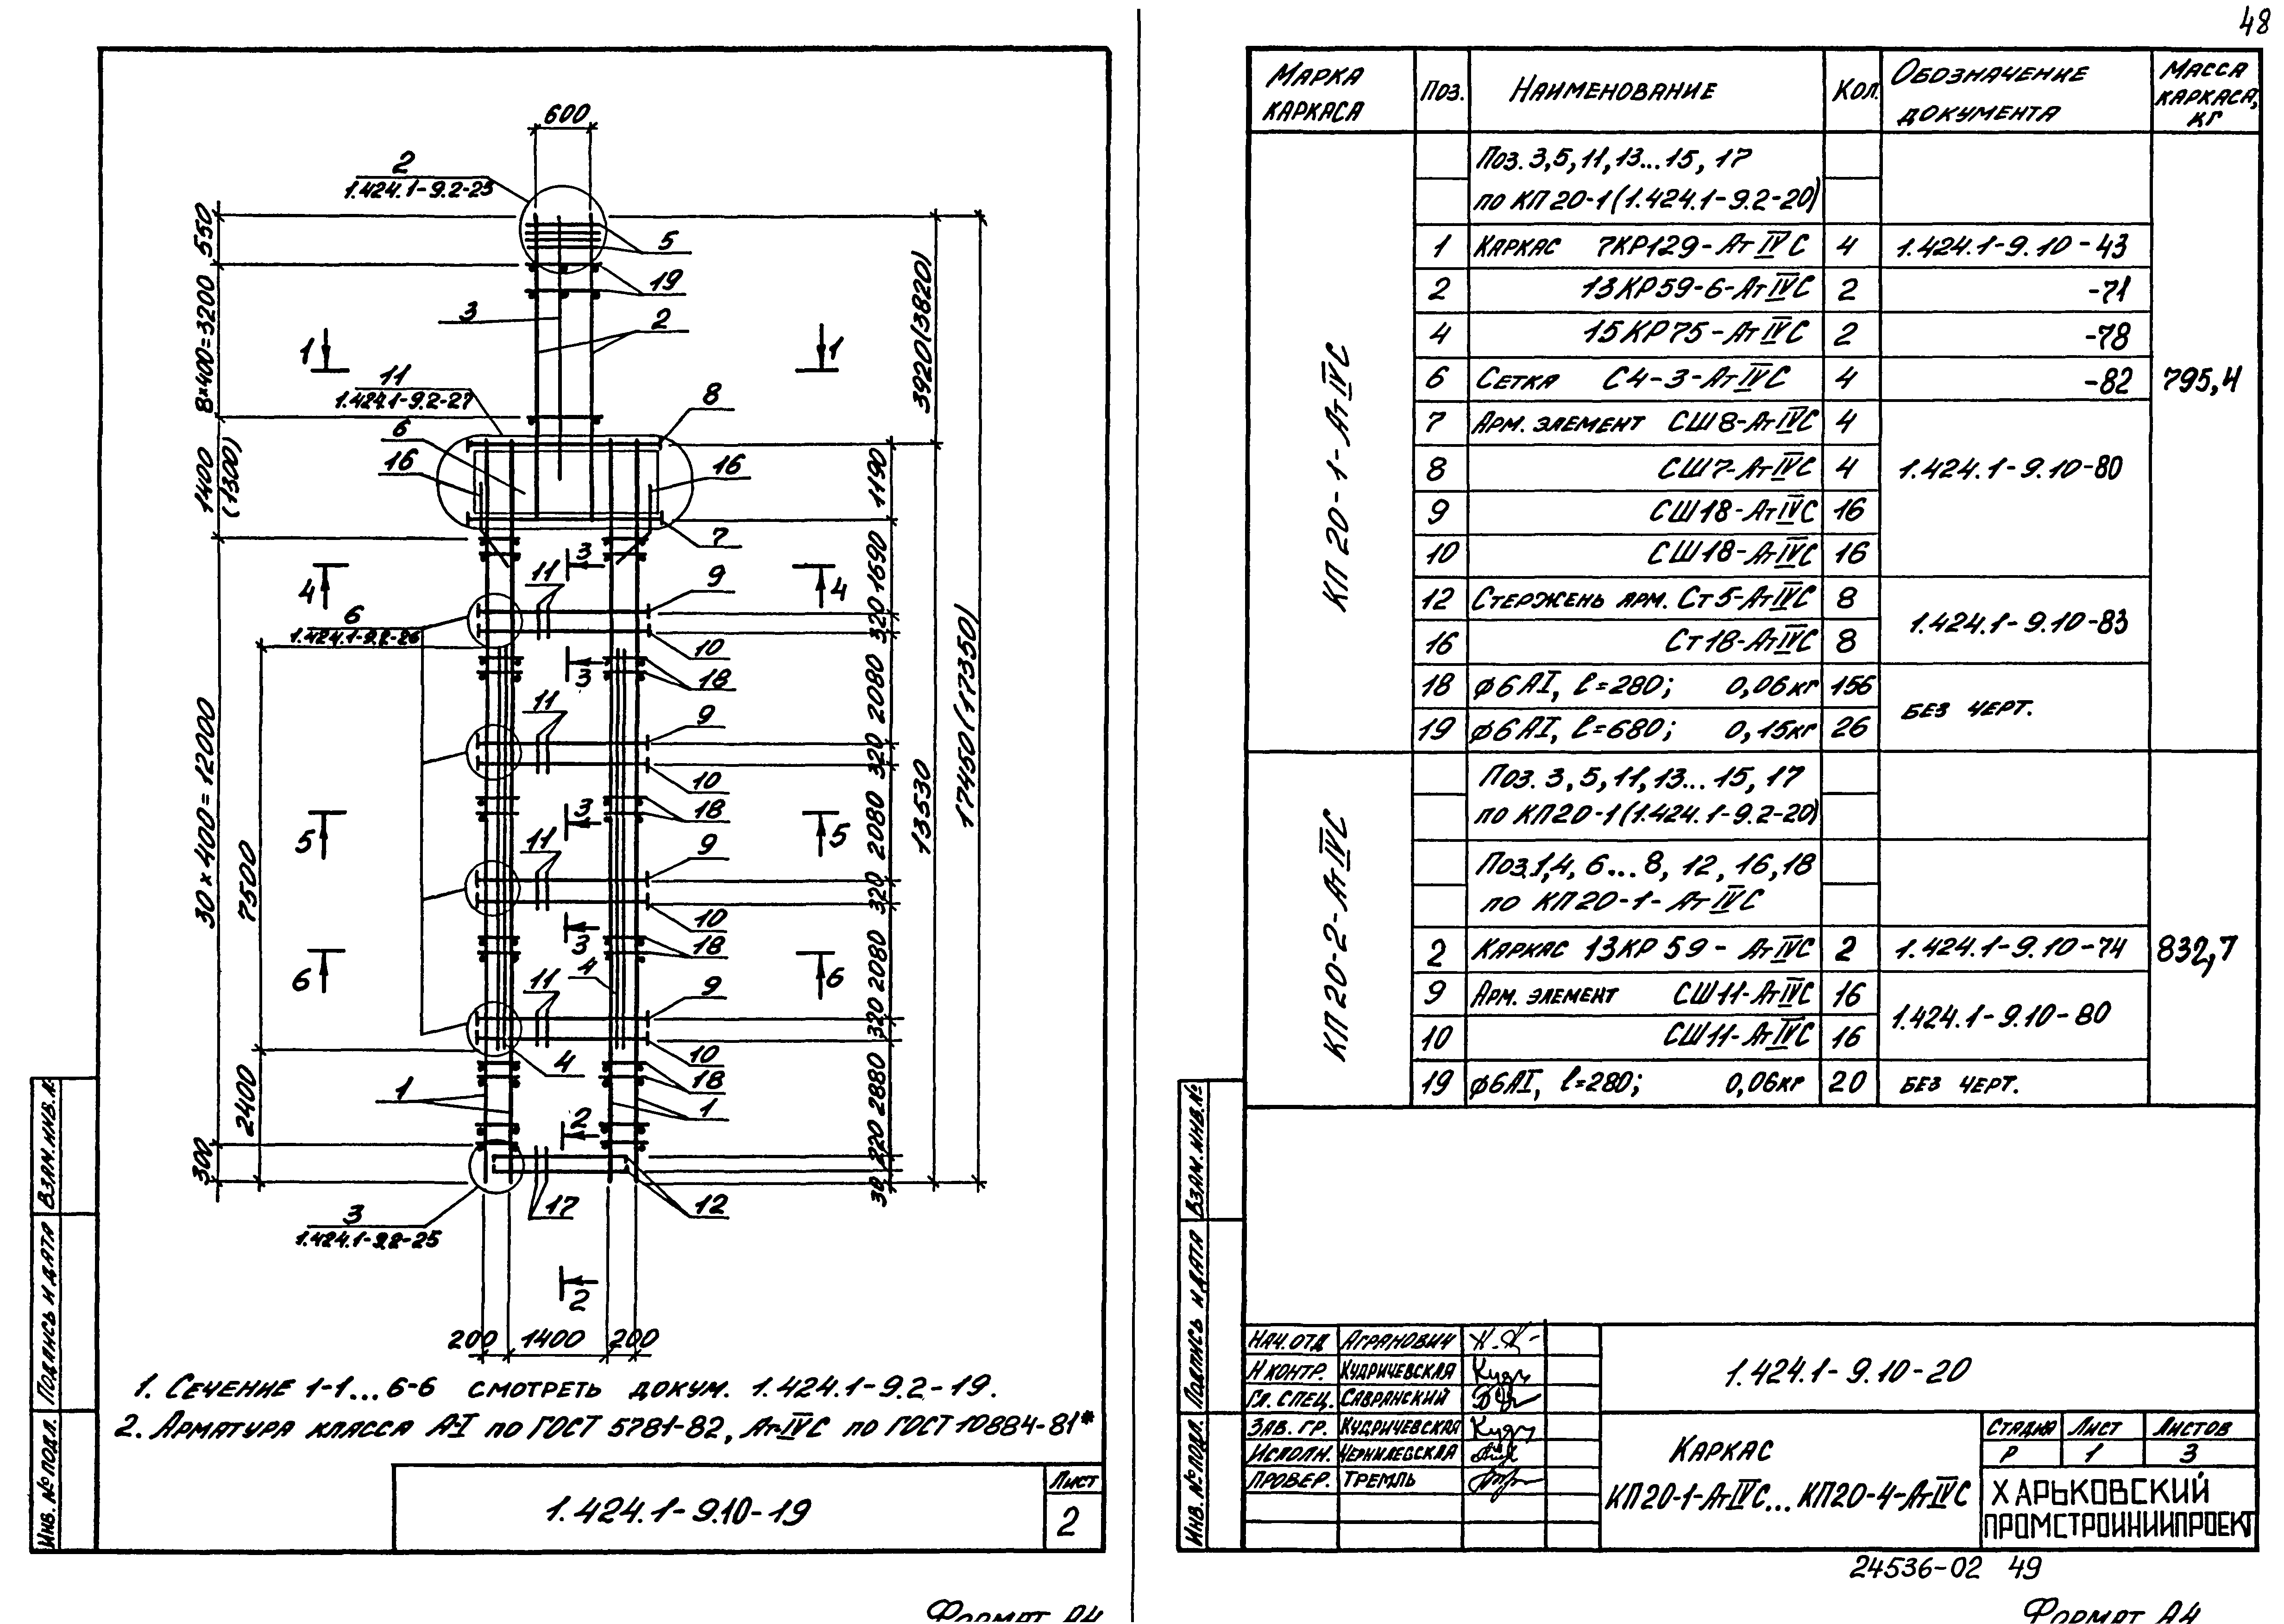 48
600
2
1.424.1-9.2-25
550
8×400=3200
1400
(1300)
30×400=12000
7500
2400
300
5
19
3
2
1
1
11
1.424.1-9.2-27
8
6
16
16
7
3
4
4
11
9
6
1.424.1-9.2-26
10
3
18
11
9
10
3
18
5
5
11
9
10
3
18
6
6
4
11
9
10
4
18
1
1
2
17
12
3
1.424.1-9.2-25
2
200
1400
200
3920(3820)
1190
1690
320
2080
320
2080
320
2080
320
2880
220
30
13530
17450(17350)
1. Сечение 1-1...6-6 смотреть докум. 1.424.1-9.2-19.
2. Арматура класса А-I по ГОСТ 5781-82, Ат-IVС по ГОСТ 10884-81*
1.424.1-9.10-19
Лист
2
Инв. № подл. Подпись и дата Взам. инв. №
Формат А4
Марка каркаса Поз. Наименование Кол. Обозначение документа Масса каркаса, кг
КП 20-1-АтIVС
Поз. 3,5,11,13...15,17
по КП20-1(1.424.1-9.2-20)
1 Каркас 7КР129-АтIVС 4 1.424.1-9.10-43
2 13КР59-6-АтIVС 2 -71
4 15КР75-АтIVС 2 -78
6 Сетка С4-3-АтIVС 4 -82 795,4
7 Арм. элемент СШ8-АтIVС 4
8 СШ7-АтIVС 4 1.424.1-9.10-80
9 СШ18-АтIVС 16
10 СШ18-АтIVС 16
12 Стержень арм. Ст5-АтIVС 8
16 Ст18-АтIVС 8 1.424.1-9.10-83
18 ϕ6АI, ℓ=280; 0,06кг 156
19 ϕ6АI, ℓ=680; 0,15кг 26 без черт.
КП 20-2-АтIVС
Поз. 3,5,11,13...15,17
по КП20-1(1.424.1-9.2-20)
Поз.1,4, 6...8, 12, 16,18
по КП20-1-АтIVС
2 Каркас 13КР59-АтIVС 2 1.424.1-9.10-74 832,7
9 Арм. элемент СШ11-АтIVС 16
10 СШ11-АтIVС 16 1.424.1-9.10-80
19 ϕ6АI, ℓ=280; 0,06кг 20 без черт.
Инв. № подл. Подпись и дата Взам. инв. №
Нач. отд Агранович
Н контр. Кудричевская
Гл. спец. Савранский
Зав. гр. Кудричевская
Исполн. Чернилевская
Провер. Тремль
1.424.1-9.10-20
Каркас
КП20-1-АтIVС...КП20-4-АтIVС
Стадия Лист Листов
Р 1 3
Харьковский
Промстройниипроект
24536-02 49
Формат А4